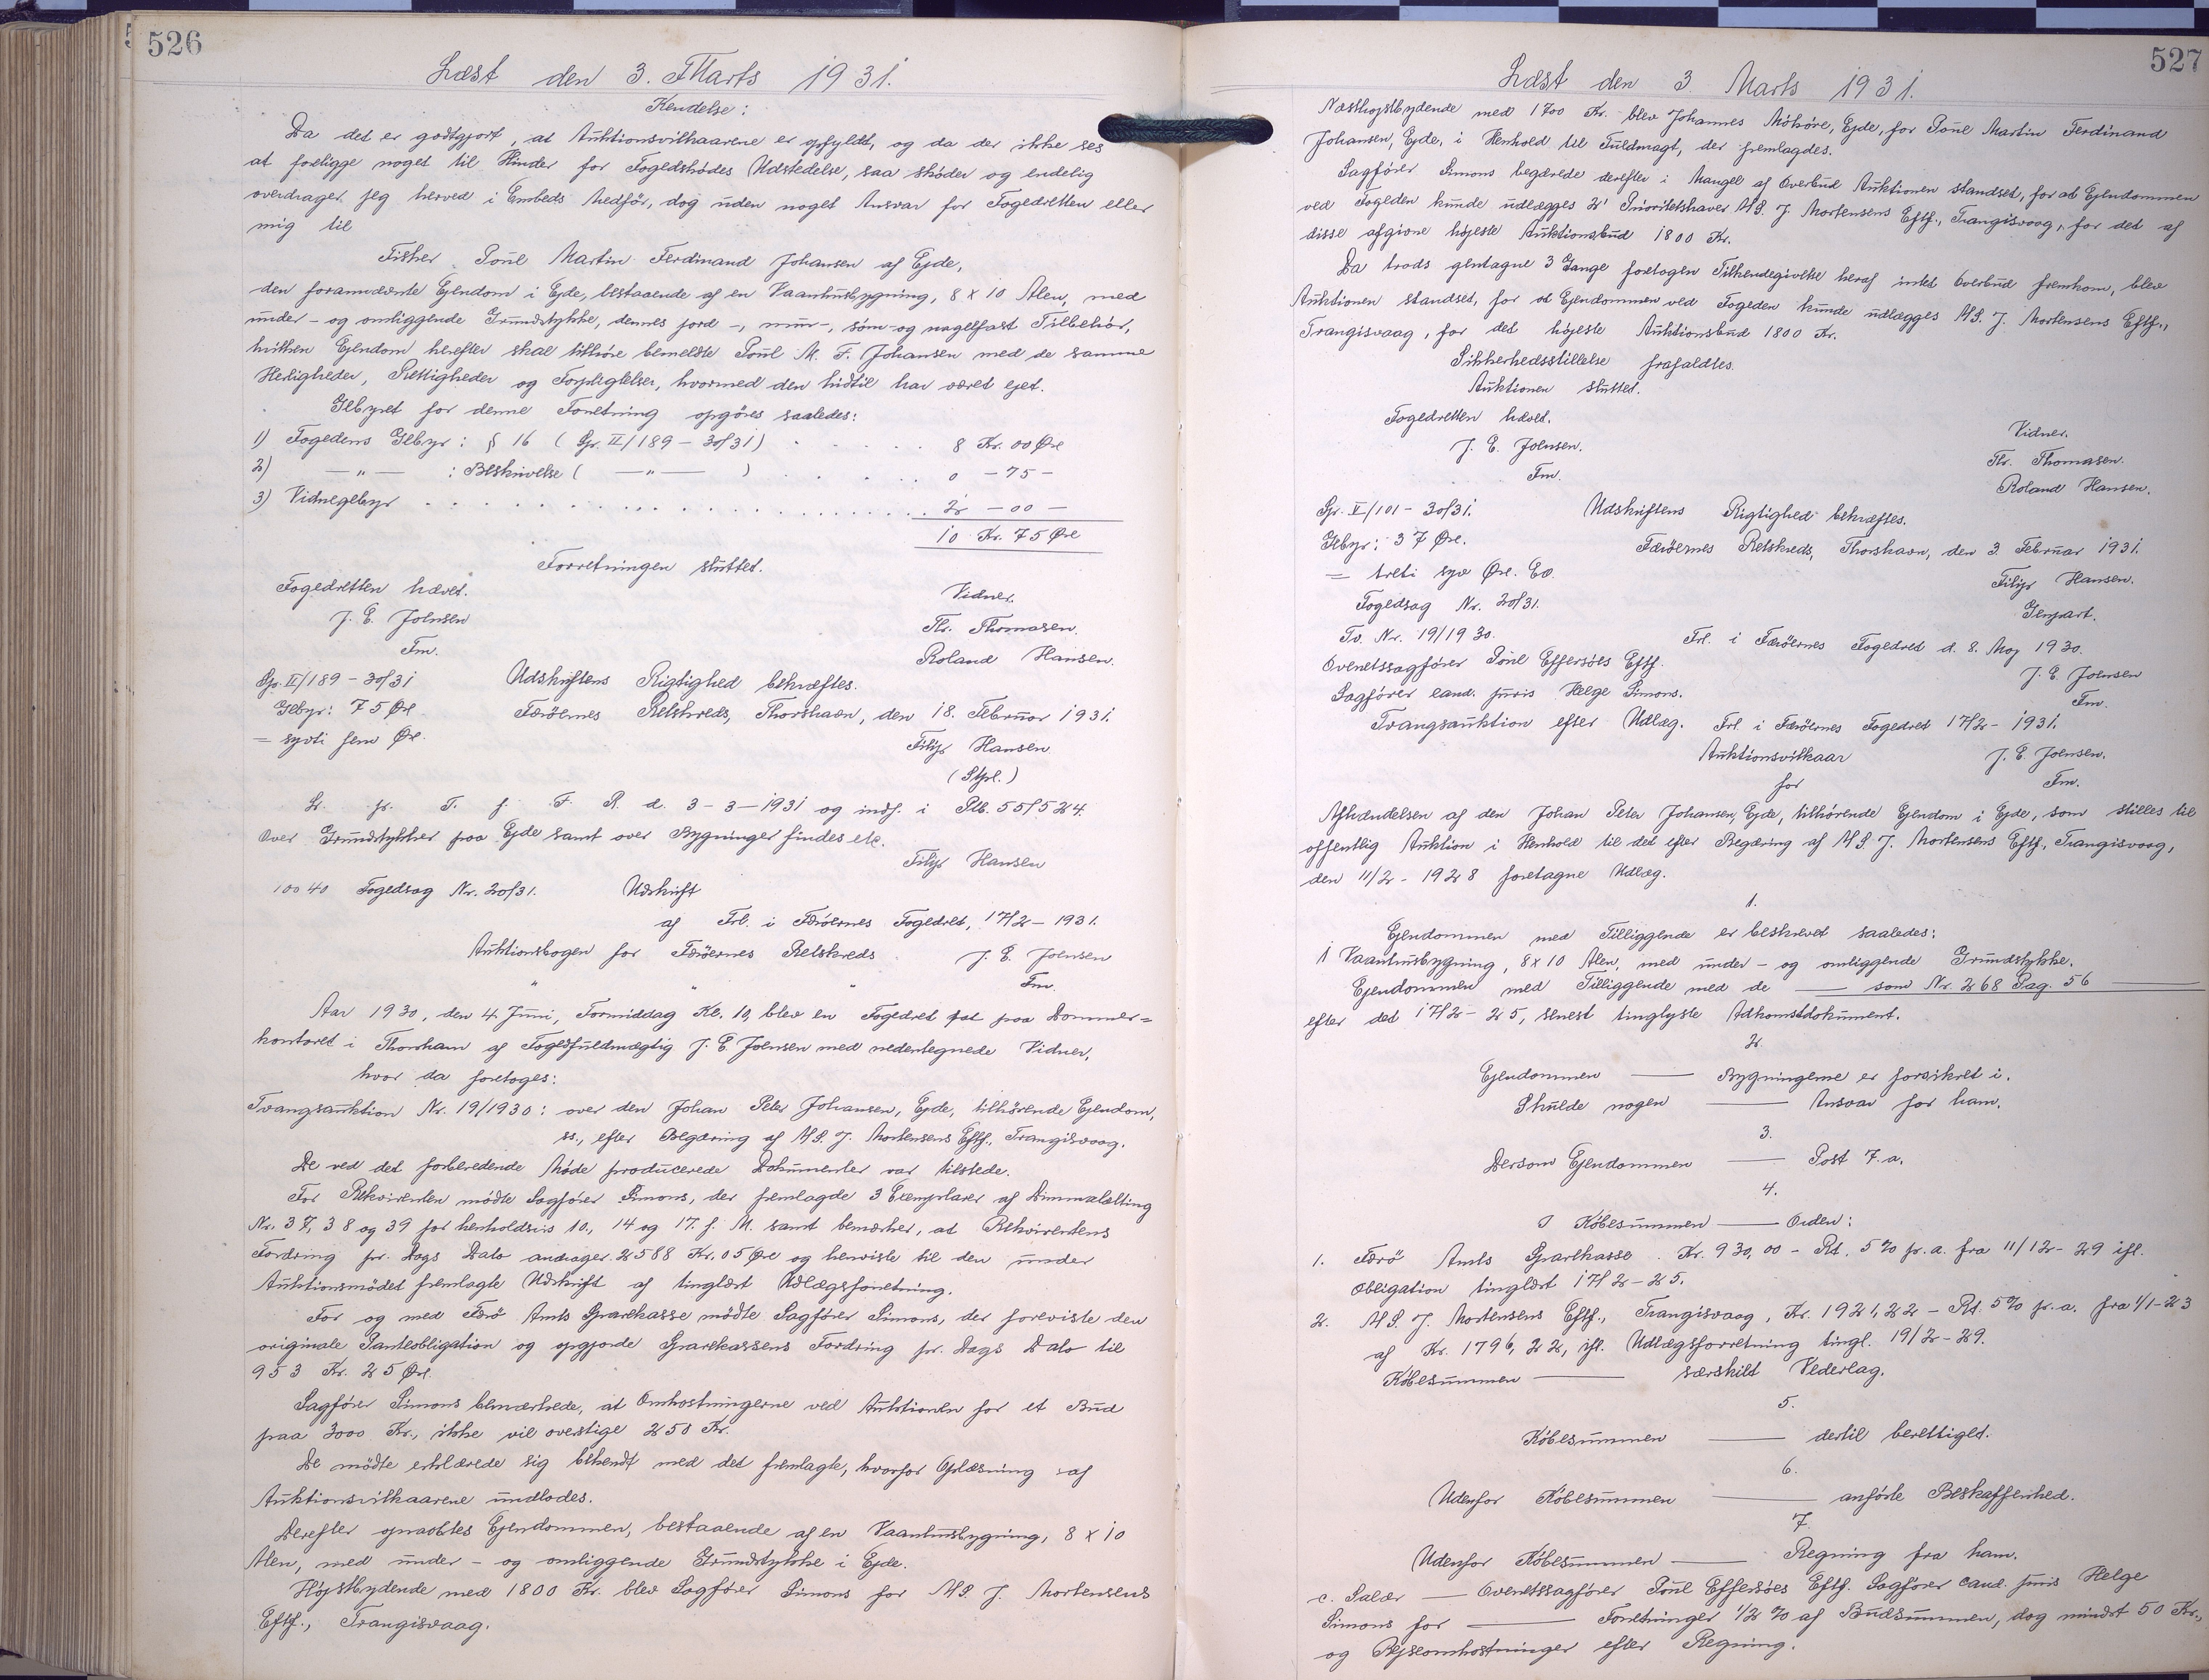 526
Læst den 3. Marts 1931.
Kendelse:
Da det er godtgjort, at Auktionsvilkaarene er opfyldt, og da der ikke ses
at foreligge noget til Hinder for Fogedskødes Udstedelse, saa skøder og endelig
overdrager jeg herved i Embeds Medfør, dog uden noget Ansvar for Fogedretten eller
mig til
Fisker Poul Martin Ferdinand Johansen af Ejde,
den forannævnte Ejendom i Ejde, bestaaende af en Vaanhusbygning, 8 x 10 Alen, med
under- og omliggende Grundstykke, dennes jord-, mur-, søm- og nagelfast Tilbehør,
hvilken Ejendom herefter skal tilhøre bemeldte Poul M. F. Johansen med de samme
Herligheder, Rettigheder og Forpligtelser, hvormed den hidtil har været ejet.
Gebyret for denne Forretning opgøres saaledes:
1) Fogedens Gebyr: § 16 (Gr. II/189 - 30/31) . . . . 8 Kr. 00 Øre
2) —"— : Beskrivelse ( —"— ) . . . . 0 - 75 -
3) Vidnegebyr . . . . . . . . . . 2 - 00 -
10 Kr. 75 Øre
Forretningen sluttet.
Fogedretten hævet. Vidner.
J. E. Joensen Th. Thomasen.
Fm. Roland Hansen.
Gr. II/189 - 30/31 Udskriftens Rigtighed bekræftes.
Gebyr: 75 Øre Færøernes Retskreds, Thorshavn, den 18. Februar 1931.
= syvti fem Øre. Filip Hansen
(Stpl.)
L. p. T. f. F. R. d. 3-3-1931 og indf. i Ptb. 55/524.
Over Grundstykker paa Ejde samt over Bygninger findes etc.
Filip Hansen
10040 Fogedsag Nr. 20/31. Udskrift
af Frl. i Færøernes Fogedret, 17/2 - 1931.
Auktionsbogen for Færøernes Retskreds J. E. Joensen
" " " Fm.
Aar 1930, den 4. Juni, Formiddag Kl. 10, blev en Fogedret sat paa Dommer=
kontoret i Thorshavn af Fogedfuldmægtig J. E. Joensen med undertegnede Vidner,
hvor da foretoges:
Tvangsauktion Nr. 19/1930: over den Johan Peter Johansen, Ejde, tilhørende Ejendom,
ss., efter Begæring af M.S. J. Mortensens Eftf., Trangisvaag.
De ved det forberedende Møde producerede Dokumenter var tilstede.
For Rekvirenten mødte Sagfører Simons, der fremlagde 3 Exemplarer af Dimmalætting
Nr. 37, 38 og 39 for henholdsvis 10., 14 og 17. f. M. samt bemærker, at Rekvirentens
Fordring pr. Dags Dato andrager 2588 Kr. 05 Øre og henviste til den under
Auktionsmødet fremlagte Udskrift af tinglæst Udlægsforretning.
For og med Færø Amts Sparekasse mødte Sagfører Simons, der foreviste den
originale Panteobligation og opgjorde Sparekassens Fordring pr. Dags Dato til
953 Kr. 25 Øre.
Sagfører Simons bemærkede, at Omkostningerne ved Auktionen for et Bud
paa 3000 Kr., ikke vil overstige 250 Kr.
De mødte erklærede sig bekendt med det fremlagte, hvorfor Oplæsning af
Auktionsvilkaarene undlodes.
Derefter opraabtes Ejendommen, bestaaende af en Vaanhusbygning, 8 x 10
Alen, med under- og omliggende Grundstykke i Ejde.
Højstbydende med 1800 Kr. blev Sagfører Simons for M.S. J. Mortensens
Eftf., Trangisvaag.
527
Læst den 3 Marts 1931.
Næsthøjstbydende med 1700 Kr. blev Johannes Mohøre, Ejde, for Poul Martin Ferdinand
Johansen, Ejde, i Henhold til Fuldmagt, der fremlagdes.
Sagfører Simons begærede derefter i Mangel af Overbud Auktionen standset, for at Ejendommen
ved Fogeden kunde udlægges 2' Prioritetshaver M.S. J. Mortensens Eftf., Trangisvaag, for det af
disse afgivne højeste Auktionsbud 1800 Kr.
Da trods gentagne 3 Gange foretagen Tilkendegivelse heraf intet Overbud fremkom, blev
Auktionen standset, for at Ejendommen ved Fogeden kunde udlægges M.S. J. Mortensens Eftf.,
Trangisvaag, for det højeste Auktionsbud 1800 Kr.
Sikkerhedsstillelse frafaldtes.
Auktionen sluttet.
Fogedretten hævet. Vidner.
J. E. Joensen. Th. Thomasen.
Fm. Roland Hansen.
Gr. II/101 - 30/31. Udskriftens Rigtighed bekræftes.
Gebyr: 37 Øre. Færøernes Retskreds, Thorshavn, den 3. Februar 1931.
= treti syv Øre. Eo. Filip Hansen.
Fogedsag Nr. 20/31. Genpart.
Tv. Nr. 19/1930. Frl. i Færøernes Fogedret d. 8. Maj 1930.
Overretssagfører Poul Effersøes Eftf. J. E. Joensen
Sagfører cand. juris Helge Simons. Fm.
Tvangsauktion efter Udlæg. Frl. i Færøernes Fogedret 17/2 - 1931.
Auktionsvilkaar J. E. Joensen.
for Fm.
Afhændelsen af den Johan Peter Johansen, Ejde, tilhørende Ejendom i Ejde, som stilles til
offentlig Auktion i Henhold til det efter Begæring af M.S. J. Mortensens Eftf., Trangisvaag,
den 11/2 - 1928 foretagne Udlæg.
1.
Ejendommen med Tilliggende er beskrevet saaledes:
1 Vaanhusbygning, 8x10 Alen, med under- og omliggende Grundstykke.
Ejendommen med Tilliggende med de —— som Nr. 268 Pag. 56 ——
efter det 17/2 - 25, senest tinglyste Adkomstdokument.
2.
Ejendommen —— Bygningerne er forsikret i.
Skulde nogen —— Ansvar for ham.
3.
Dersom Ejendommen —— Post 7.a.
4.
I Købesummen —— Orden:
1. Færø Amts Sparekasse Kr. 930,00 - Rt. 5% p.a. fra 11/12-29 ifl.
Obligation tinglæst 17/2-25.
2. M.S. J. Mortensens Eftf., Trangisvaag, Kr. 1921,22 - Rt. 5% p.a. fra 1/1-23
af Kr. 1796,22, ifl. Udlægsforretning tingl. 19/2-29.
Købesummen —— særskilt Vederlag.
5.
Købesummen —— dertil berettiget.
6.
Udenfor Købesummen —— anførte Beskaffenhed.
7.
Udenfor Købesummen —— Regning fra ham.
c. Salær —— Overretssagfører Poul Effersøes Eftf. Sagfører cand. juris Helge
Simons for —— Forretninger 1/2 % af Budsummen, dog mindst 50 Kr.,
og Rejseomkostninger efter Regning.